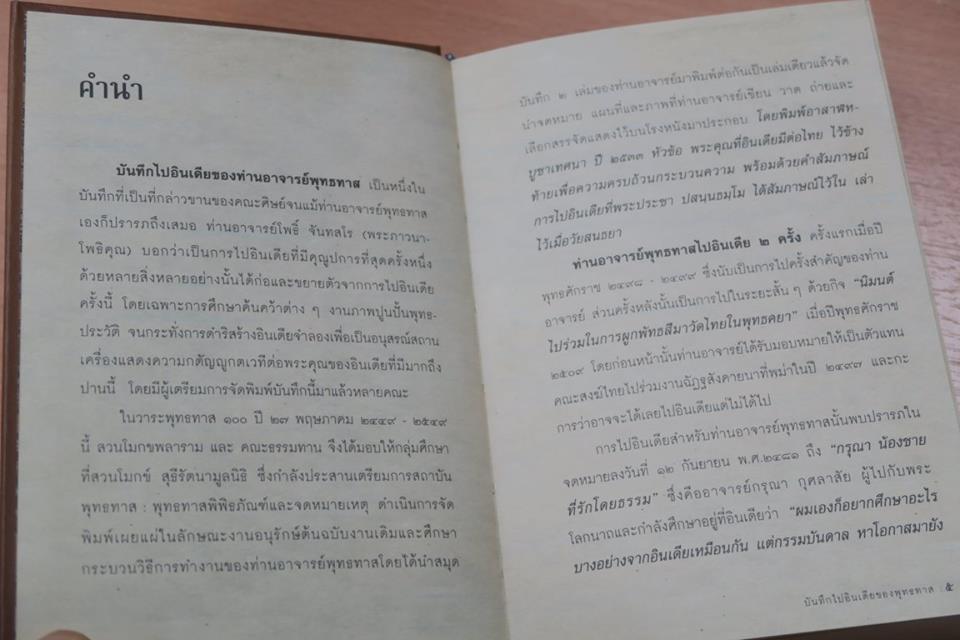 คำนำ
บันทึกไปอินเดียของท่านอาจารย์พุทธทาส เป็นหนึ่งใน
บันทึกที่เป็นที่กล่าวขานของคณะศิษย์จนแม้ท่านอาจารย์พุทธทาส
เองก็ปรารภถึงเสมอ ท่านอาจารย์โพธิ์ จันทสโร (พระภาวนา-
โพธิคุณ) บอกว่าเป็นการไปอินเดียที่มีคุณูปการที่สุดครั้งหนึ่ง
ด้วยหลายสิ่งหลายอย่างนั้นได้ก่อและขยายตัวจากการไปอินเดีย
ครั้งนี้ โดยเฉพาะการศึกษาค้นคว้าต่าง ๆ งานภาพปูนปั้นพุทธ-
ประวัติ จนกระทั่งการดำริสร้างอินเดียจำลองเพื่อเป็นอนุสรณ์สถาน
เครื่องแสดงความกตัญญูกตเวทีต่อพระคุณของอินเดียที่มีมากถึง
ปานนี้ โดยมีผู้เตรียมการจัดพิมพ์บันทึกนี้มาแล้วหลายคณะ
ในวาระพุทธทาส ๑๐๐ ปี ๒๗ พฤษภาคม ๒๔๔๙ - ๒๕๔๙
นี้ สวนโมกขพลาราม และ คณะธรรมทาน จึงได้มอบให้กลุ่มศึกษา
ที่สวนโมกข์ สุธีรัตนามูลนิธิ ซึ่งกำลังประสานเตรียมการสถาบัน
พุทธทาส : พุทธทาสพิพิธภัณฑ์และจดหมายเหตุ ดำเนินการจัด
พิมพ์เผยแผ่ในลักษณะงานอนุรักษ์ต้นฉบับงานเดิมและศึกษา
กระบวนวิธีการทำงานของท่านอาจารย์พุทธทาสโดยได้นำสมุด
บันทึก ๒ เล่มของท่านอาจารย์มาพิมพ์ต่อกันเป็นเล่มเดียวแล้วจัด
นำจดหมาย แผนที่และภาพที่ท่านอาจารย์เขียน วาด ถ่ายและ
เลือกสรรจัดแสดงไว้บนโรงหนังมาประกอบ โดยพิมพ์อาสาฬห-
บูชาเทศนา ปี ๒๕๓๓ หัวข้อ พระคุณที่อินเดียมีต่อไทย ไว้ข้าง
ท้ายเพื่อความครบถ้วนกระบวนความ พร้อมด้วยคำสัมภาษณ์
การไปอินเดียที่พระประชา ปสนฺนธมฺโม ได้สัมภาษณ์ไว้ใน เล่า
ไว้เมื่อวัยสนธยา
ท่านอาจารย์พุทธทาสไปอินเดีย ๒ ครั้ง ครั้งแรกเมื่อปี
พุทธศักราช ๒๔๙๘ - ๒๔๙๙ ซึ่งนับเป็นการไปครั้งสำคัญของท่าน
อาจารย์ ส่วนครั้งหลังนั้นเป็นการไปในระยะสั้น ๆ ด้วยกิจ “นิมนต์
ไปร่วมในการผูกพัทธสีมาวัดไทยในพุทธคยา” เมื่อปีพุทธศักราช
๒๕๐๙ โดยก่อนหน้านั้นท่านอาจารย์ได้รับมอบหมายให้เป็นตัวแทน
คณะสงฆ์ไทยไปร่วมงานฉัฏฐสังคายนาที่พม่าในปี ๒๔๙๗ และกะ
การว่าอาจจะได้เลยไปอินเดียแต่ไม่ได้ไป
การไปอินเดียสำหรับท่านอาจารย์พุทธทาสนั้นพบปรารภใน
จดหมายลงวันที่ ๑๒ กันยายน พ.ศ.๒๔๘๑ ถึง “กรุณา น้องชาย
ที่รักโดยธรรม” ซึ่งคืออาจารย์กรุณา กุศลาสัย ผู้ไปกับพระ
โลกนาถและกำลังศึกษาอยู่ที่อินเดียว่า “ผมเองก็อยากศึกษาอะไร
บางอย่างจากอินเดียเหมือนกัน แต่กรรมบันดาล หาโอกาสมายัง
บันทึกไปอินเดียของพุทธทาส ๕